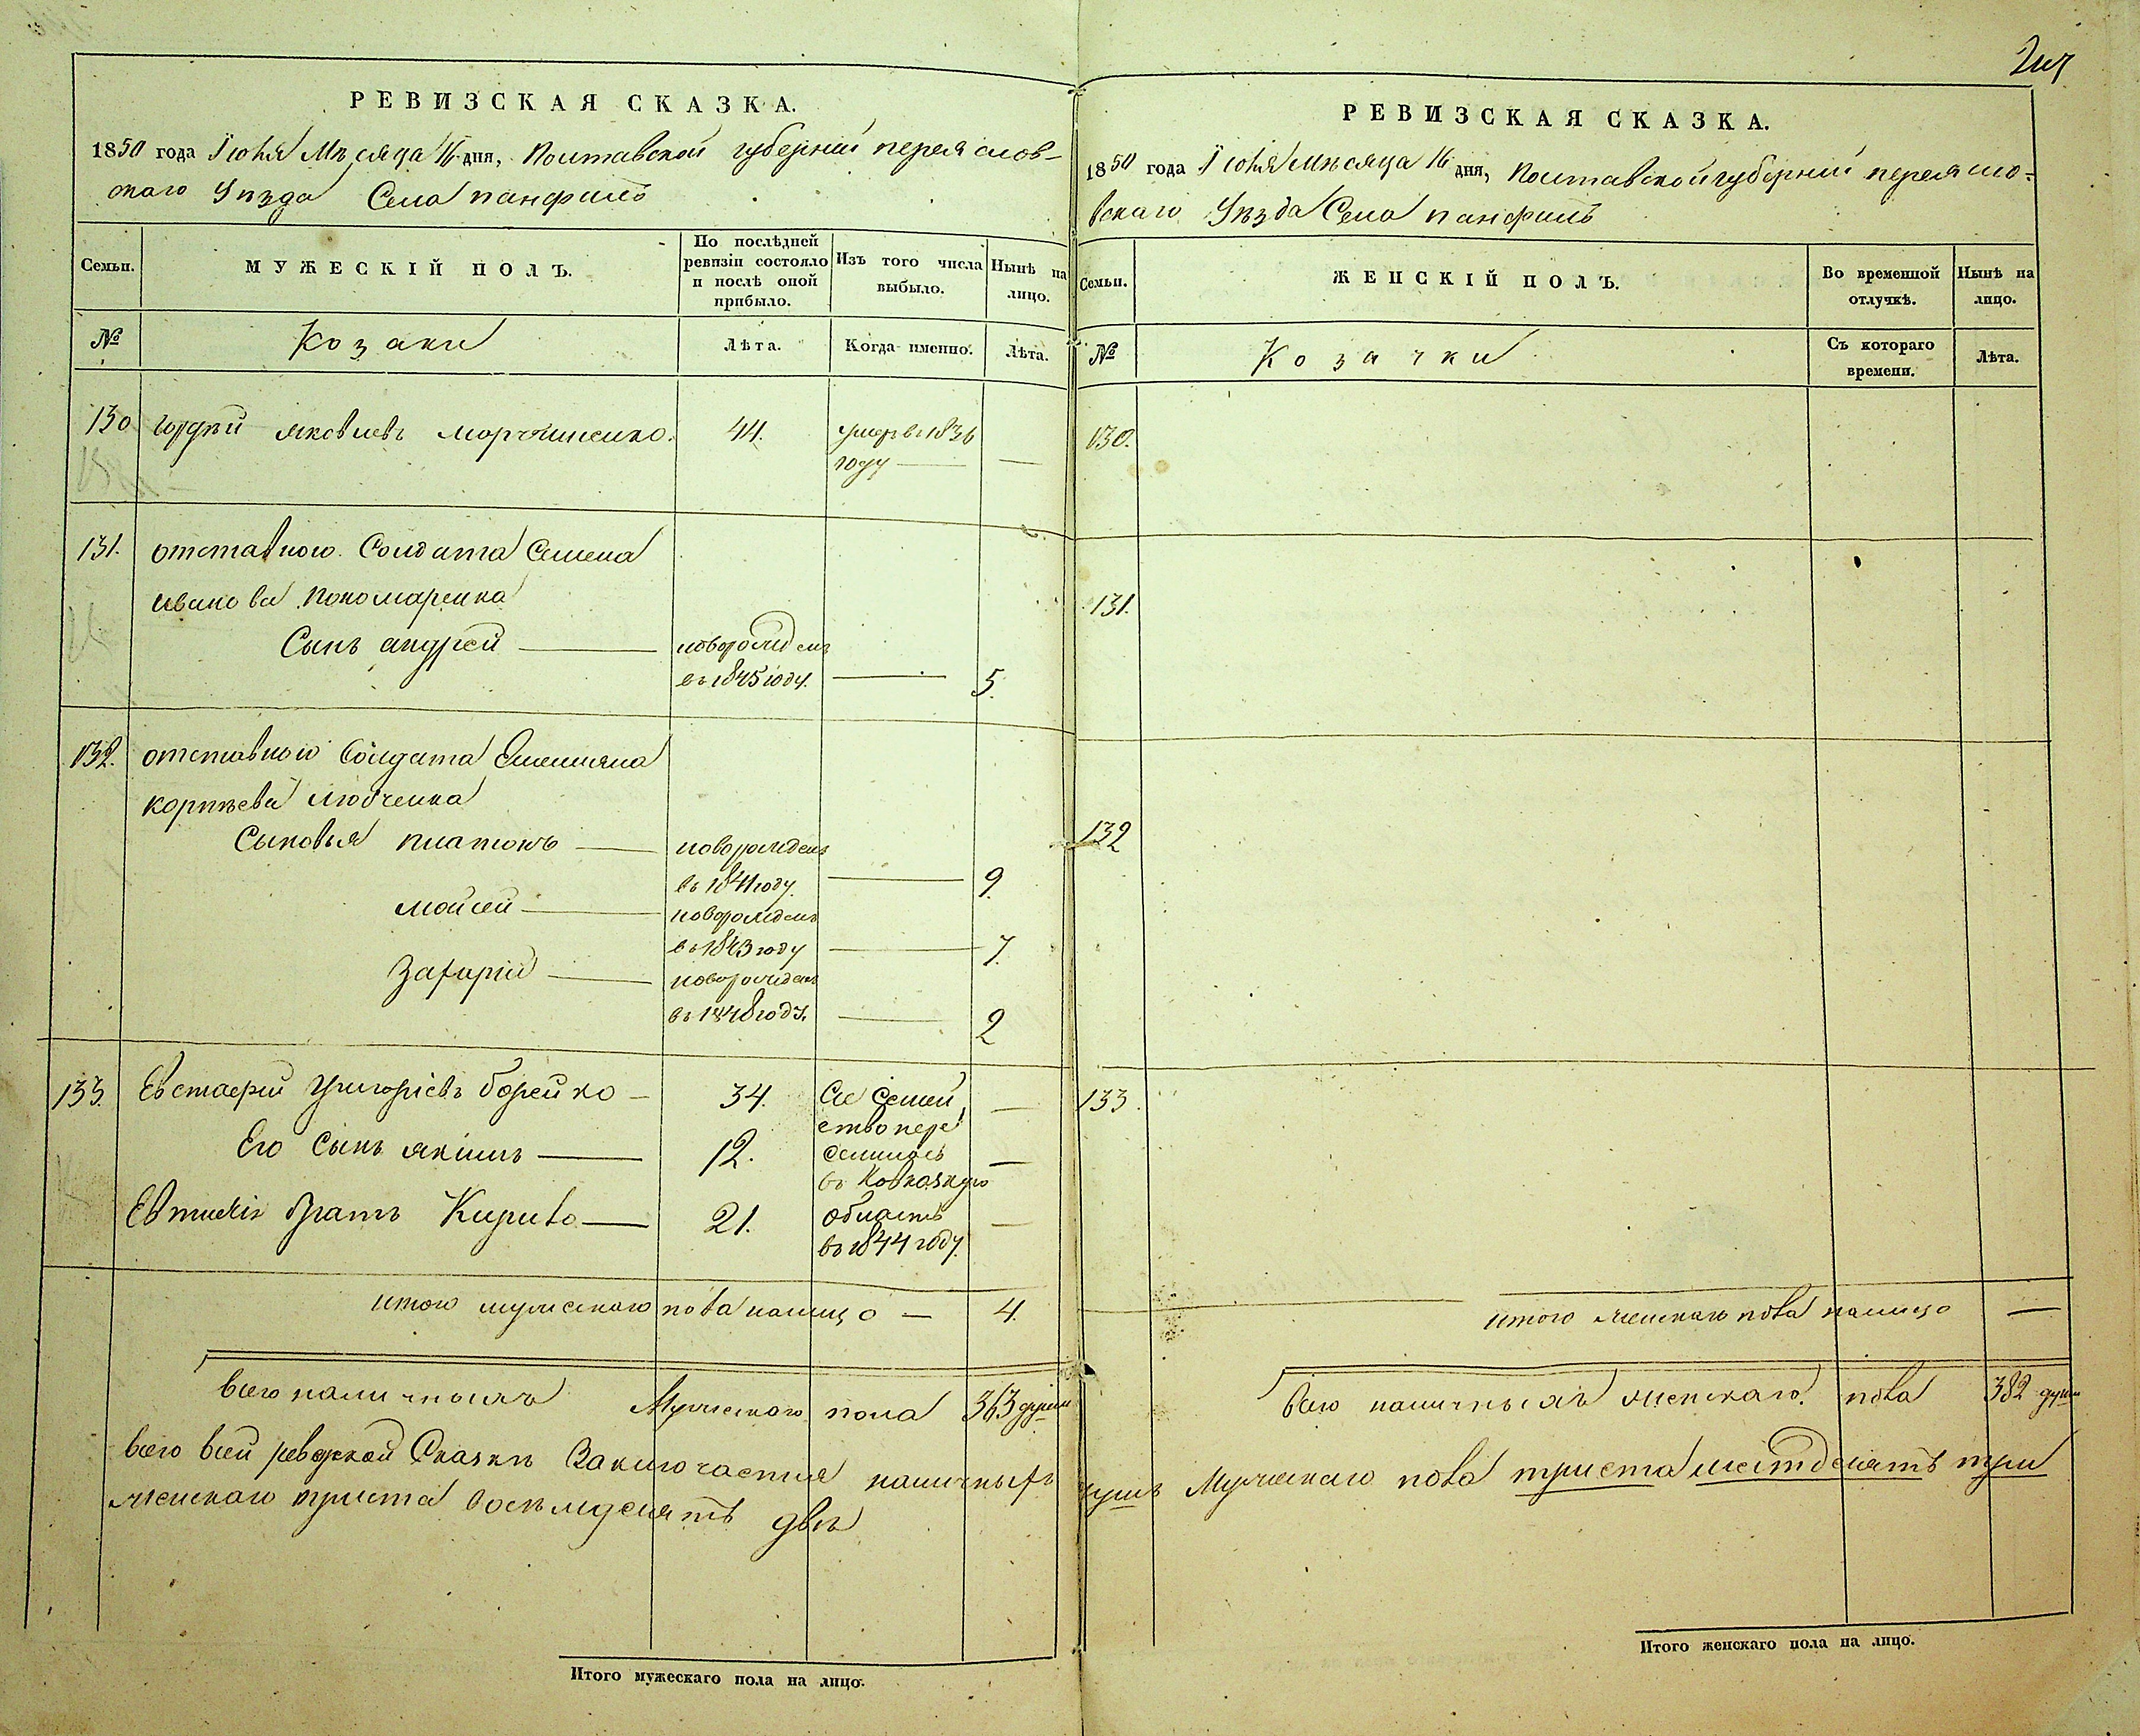 РЕВИЗСКАЯ СКАЗКА.
1850 года Іюня Мѣсяца 16 дня, Полтавской губерніи переяслов-
скаго Уѣзда Села панфилъ
Семьи.
МУЖЕСКІЙ ПОЛЪ.
По послѣдней ревизіи состояло и послѣ оной прибыло.
Изъ того числа выбыло.
Нынѣ на лицо.
№
Козаки
Лѣта.
Когда именно.
Лѣта.
130 Гордѣй яковлевъ 44. умеръ в 1836
году — —
131. отставного Солдата Семена
иванова пономаренка
Сынъ андрей — новорожденъ
въ 1845 году. — 5.
132. отставного Солдата Емелияна
корнѣева любченка
Сыновья платонъ — новорожденъ
въ 1841 году. — 9.
мойсей — новорожденъ
въ 1843 году — 7.
Захарій — новорожденъ
въ 1848 году. — 2
133. Евстафій Григоріевъ борейко — 34. Сіе Семей —
ство пере
Его Сынъ якимъ — 12. селилось —
въ Ковказкую
Евстафія братъ Кирило — 21. область —
въ 1844 году.
итого мужескаго пола налицо — 4.
всего наличныхъ Мужескаго пола 363 души
всего всей ревизской Сказкѣ Заключается наличныхъ
женскаго триста восемьдесятъ двѣ
Итого мужескаго пола на лицо.
РЕВИЗСКАЯ СКАЗКА.
1850 года Іюня Мѣсяца 16 дня, Полтавской губерніи переясло-
вскаго Уѣзда Села панфилъ
Семьи.
ЖЕНСКІЙ ПОЛЪ.
Во временной отлучкѣ.
Нынѣ на лицо.
№
Козачки
Съ котораго времени.
Лѣта.
130.
131.
132
133.
итого женскаго пола налицо —
всего наличныхъ женскаго пола 382 души
душъ Мужескаго пола триста шестдесятъ три
Итого женскаго пола на лицо.